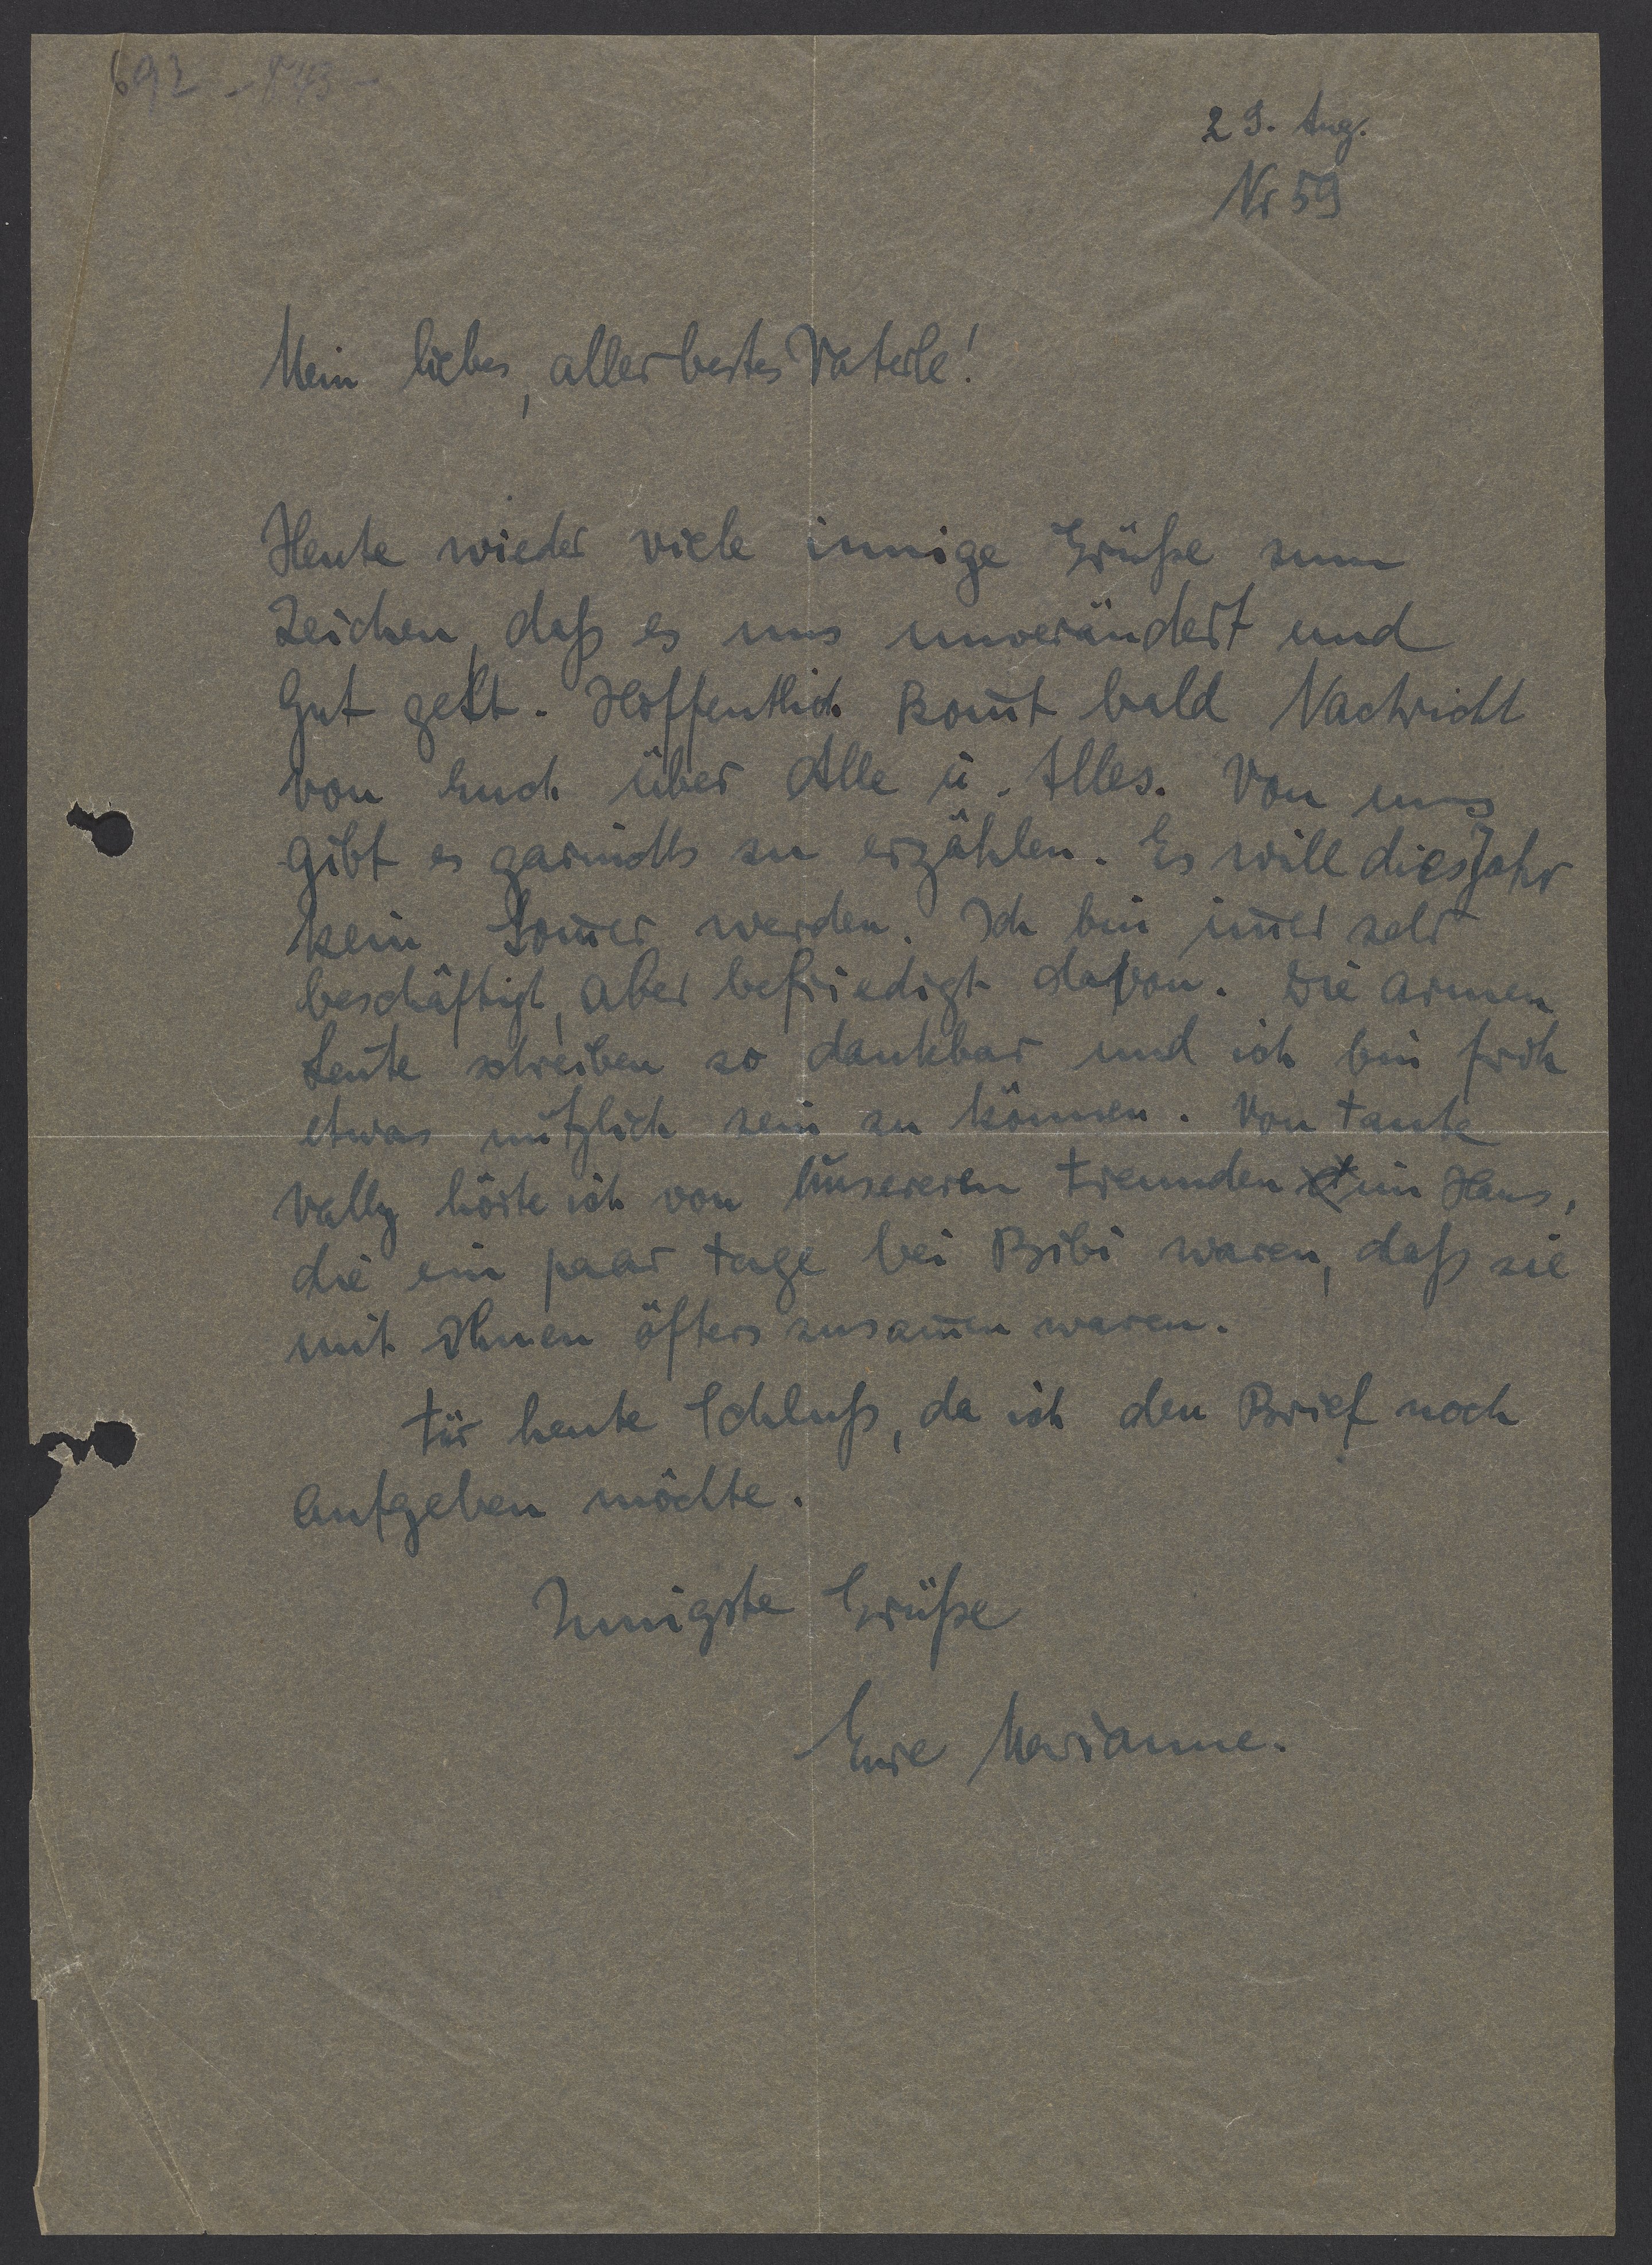 692
29. Aug.
Nr 59
Mein liebes, allerbestes Vaterle!
Heute wieder viele innige Grüße zum
Zeichen, daß es uns unverändert und
gut geht. Hoffentlich kom̄t bald Nachricht
von Euch über Alle u. Alles. Von uns
gibt es garnichts zu erzählen. Es will dies Jahr
kein Som̄er werden. Ich bin im̄er sehr
beschäftigt, aber befriedigt davon. Die armen
Leute schreiben so dankbar und ich bin froh
etwas nützlich sein zu können. Von Tante
Vally hörte ich von unsereren Freunden im Haus,
die ein paar Tage bei Bibi waren, daß sie
mit Ihnen öfters zusam̄en waren.
Für heute Schluß, da ich den Brief noch
aufgeben möchte.
Innigste Grüße
Eure Marianne.